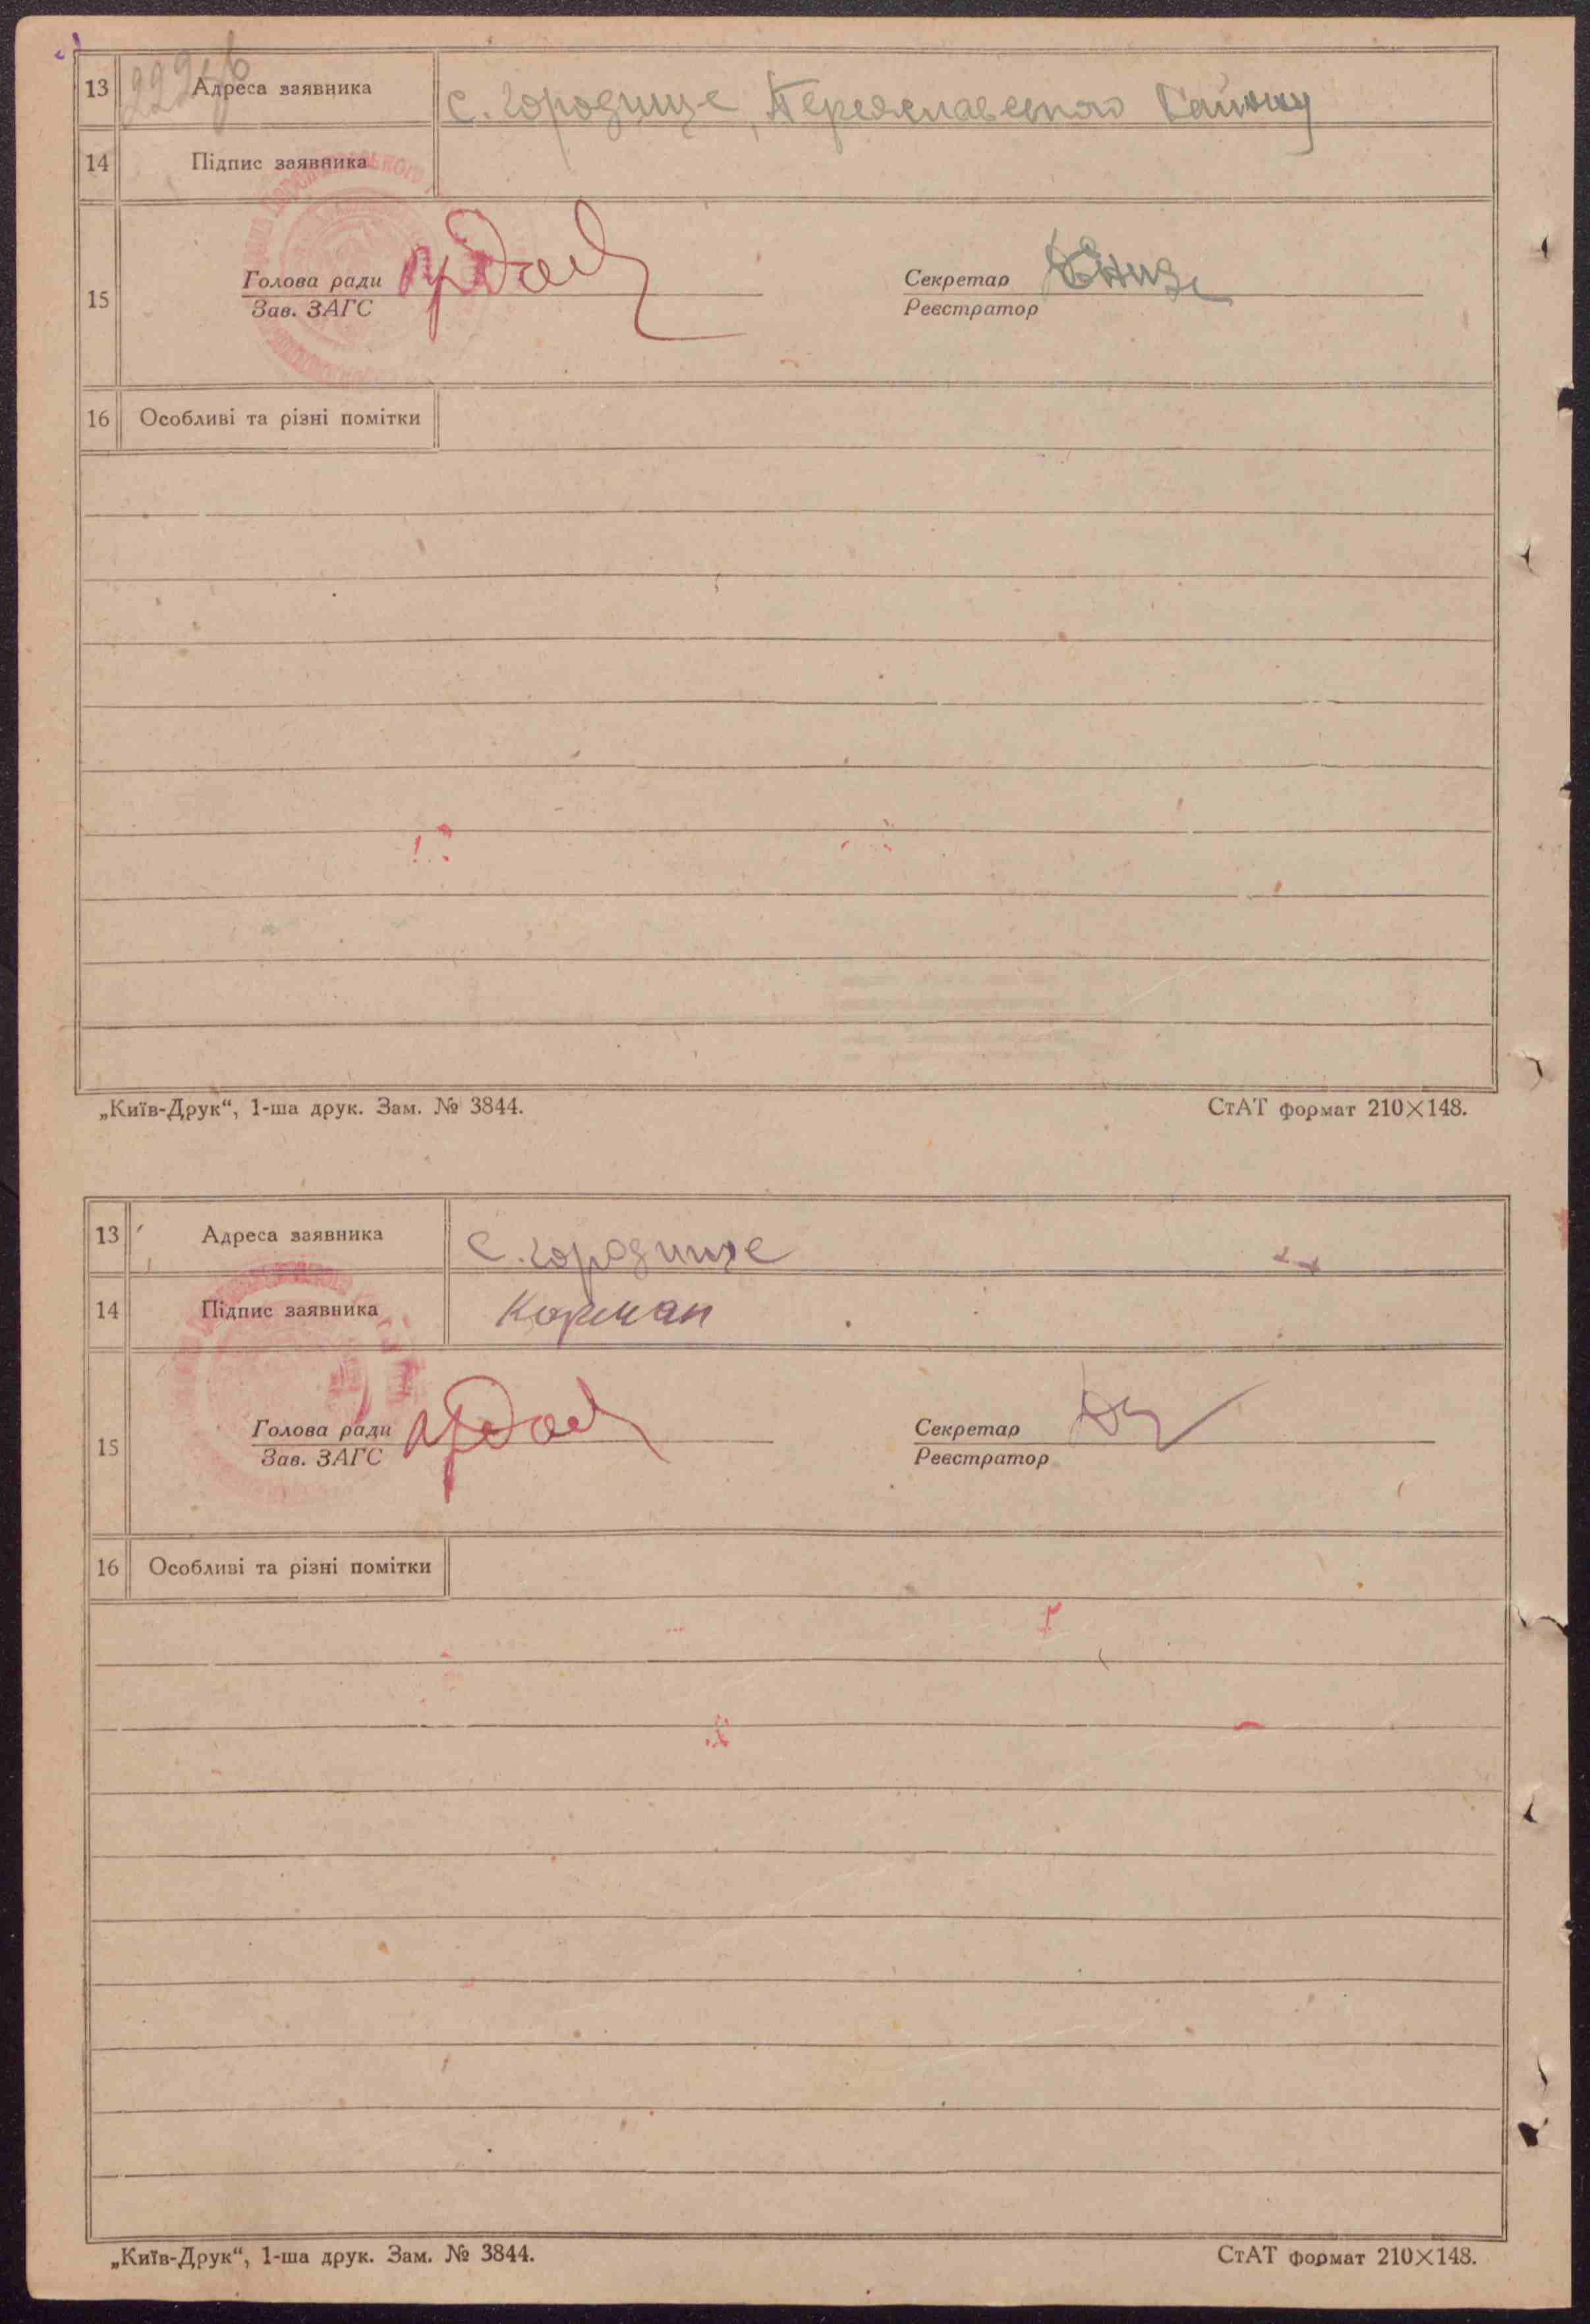 13 Адреса заявника с. Городище, Переяславського Району
14 Підпис заявника
15 Голова ради Секретар
Зав. ЗАГС Реєстратор
16 Особливі та різні помітки
„Київ-Друк“, 1-ша друк. Зам. № 3844. СтАТ формат 210×148.
13 Адреса заявника с. Городище
14 Підпис заявника Корман
15 Голова ради Секретар
Зав. ЗАГС Реєстратор
16 Особливі та різні помітки
„Київ-Друк“, 1-ша друк. Зам. № 3844. СтАТ формат 210×148.